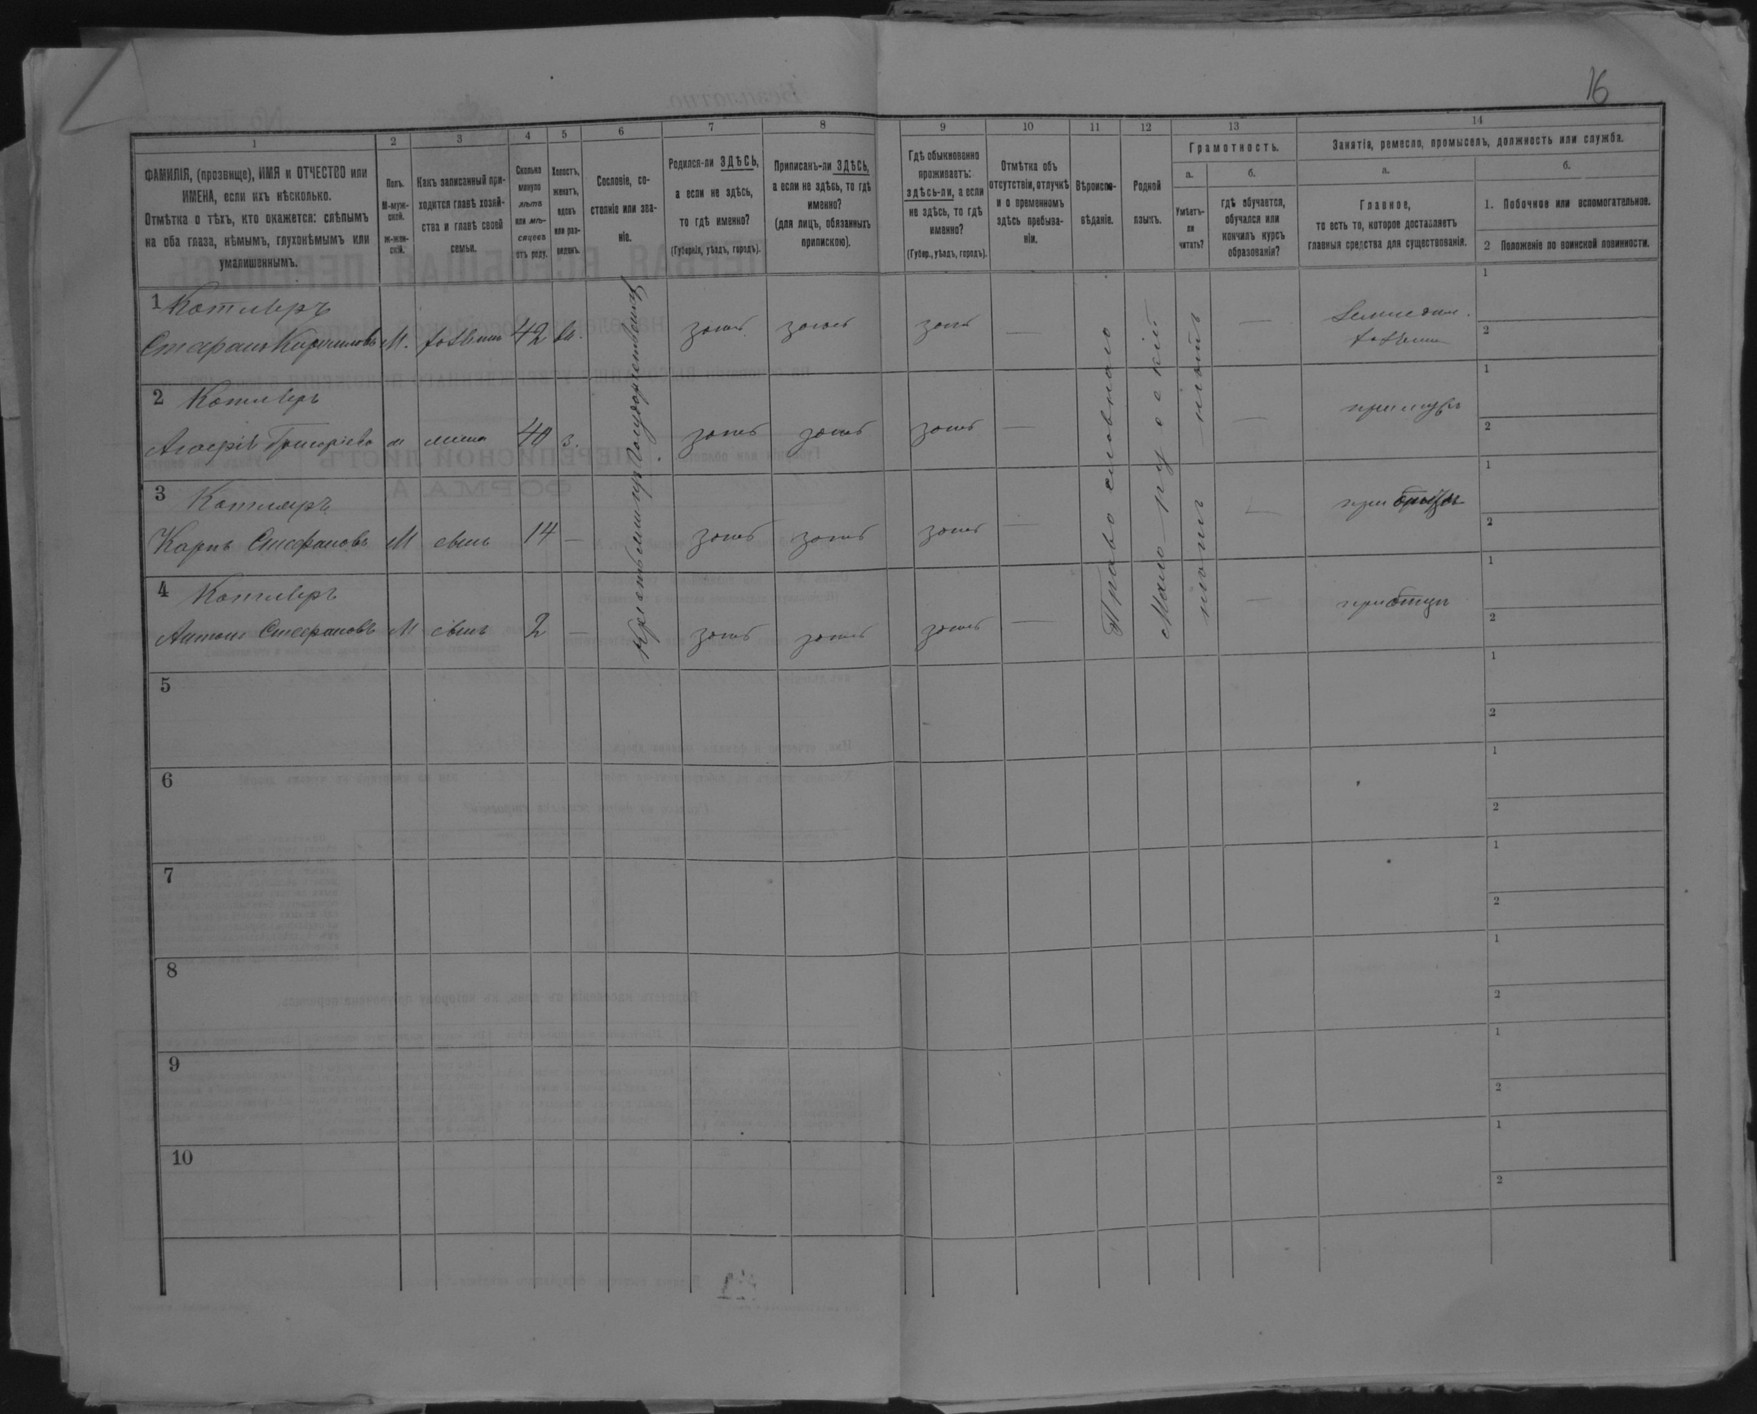 16
1
2
3
4
5
6
7
8
9
10
11
12
13
14
ФАМИЛІЯ, (прозвище), ИМЯ и ОТЧЕСТВО или
ИМЕНА, если ихъ нѣсколько.
Отмѣтка о тѣхъ, кто окажется: слѣпымъ
на оба глаза, нѣмымъ, глухонѣмымъ или
умалишеннымъ.
Полъ.
М-муж-
ской.
ж-жен-
скій.
Какъ записанный при-
ходится главѣ хозяй-
ства и главѣ своей
семьи.
Сколько
минуло
лѣтъ
или мѣ-
сяцевъ
отъ роду.
Холостъ,
женатъ,
вдовъ
или раз-
веденъ.
Сословіе, со-
стояніе или зва-
ніе.
Родился-ли ЗДѢСЬ,
а если не здѣсь,
то гдѣ именно?
(Губернія, уѣздъ, городъ).
Приписанъ-ли ЗДѢСЬ,
а если не здѣсь, то гдѣ
именно?
(для лицъ, обязанныхъ
припискою).
Гдѣ обыкновенно
проживаетъ:
здѣсь-ли, а если
не здѣсь, то гдѣ
именно?
(Губер., уѣздъ, городъ).
Отмѣтка объ
отсутствіи, отлучкѣ
и о временномъ
здѣсь пребыва-
ніи.
Вѣроиспо-
вѣданіе.
Родной
языкъ.
Грамотность.
а.
Умѣетъ-
ли
читать?
б.
гдѣ обучается,
обучался или
кончилъ курсъ
образованія?
Занятія, ремесло, промыселъ, должность или служба.
а.
Главное,
то есть то, которое доставляетъ
главныя средства для существованія.
б.
1. Побочное или вспомогательное.
2 Положеніе по воинской повинности.
1 Котляръ
Стефанъ М. хозяинъ 42 здѣсь здѣсь здѣсь — —
хозяинъ
1
2
2 Котляръ
Григоріева жена 40 з. здѣсь здѣсь здѣсь — — при мужѣ
1
2
3 Котляръ
Карпъ Стефановъ М сынъ 14 — здѣсь здѣсь здѣсь — — при отцѣ
1
2
4 Котляръ
Антонъ Стефановъ М сынъ 2 — здѣсь здѣсь здѣсь — — при отцѣ
1
2
Православнаго
Малорусскій
5
1
2
6
1
2
7
1
2
8
1
2
9
1
2
10
1
2